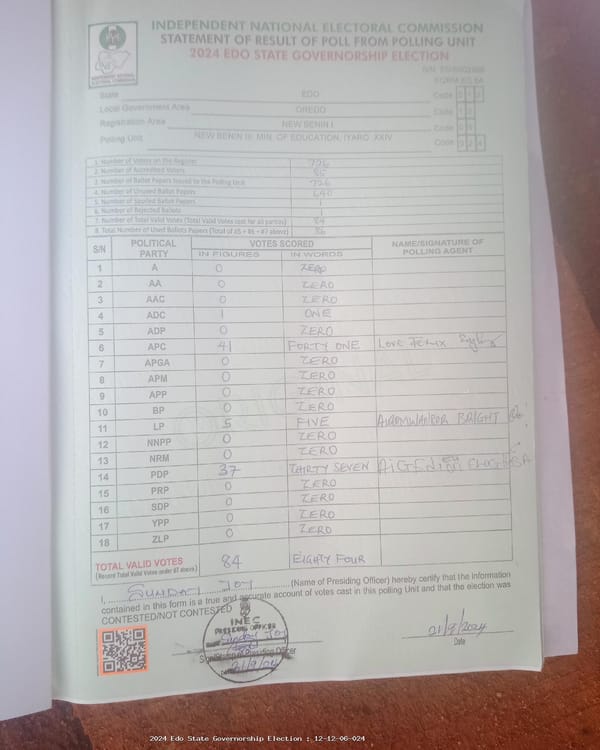 INDEPENDENT NATIONAL ELECTORAL COMMISSION
STATEMENT OF RESULT OF POLL FROM POLLING UNIT
2024 EDO STATE GOVERNORSHIP ELECTION
State EDO Code
Local Government Area OREDO Code
Registration Area NEW BENIN I Code
Polling Unit NEW BENIN III, MIN. OF EDUCATION, IYARO XXIV Code
1. Number of Voters on the Register 726
2. Number of Accredited Voters 86
3. Number of Ballot Papers Issued to the Polling Unit 726
4. Number of Unused Ballot Papers 640
5. Number of Spoiled Ballot Papers 1
6. Number of Rejected Ballots
7. Number of Total Valid Votes (Total Valid Votes cast for all parties) 84
8. Total Number of Used Ballots Papers (Total of #5 + #6 + #7 above) 86
S/N POLITICAL PARTY VOTES SCORED NAME/SIGNATURE OF POLLING AGENT
IN FIGURES IN WORDS
1 A 0 ZERO
2 AA 0 ZERO
3 AAC 0 ZERO
4 ADC 1 ONE
5 ADP 0 ZERO
6 APC 41 FORTY ONE Love
7 APGA 0 ZERO
8 APM 0 ZERO
9 APP 0 ZERO
10 BP 0 ZERO
11 LP 5 FIVE BRIGHT
12 NNPP 0 ZERO
13 NRM 0 ZERO
14 PDP 37 THIRTY SEVEN
15 PRP 0 ZERO
16 SDP 0 ZERO
17 YPP 0 ZERO
18 ZLP 0 ZERO
TOTAL VALID VOTES 84 EIGHTY FOUR
(Record Total Valid Votes under #7 above)
I, SUNDAY JOY (Name of Presiding Officer) hereby certify that the information
contained in this form is a true and accurate account of votes cast in this polling Unit and that the election was
CONTESTED/NOT CONTESTED
INEC
PRESIDING OFFICER
Sunday Joy
Signature of Presiding Officer
21/9/24
21/9/2024
Date
2024 Edo State Governorship Election : 12-12-06-024